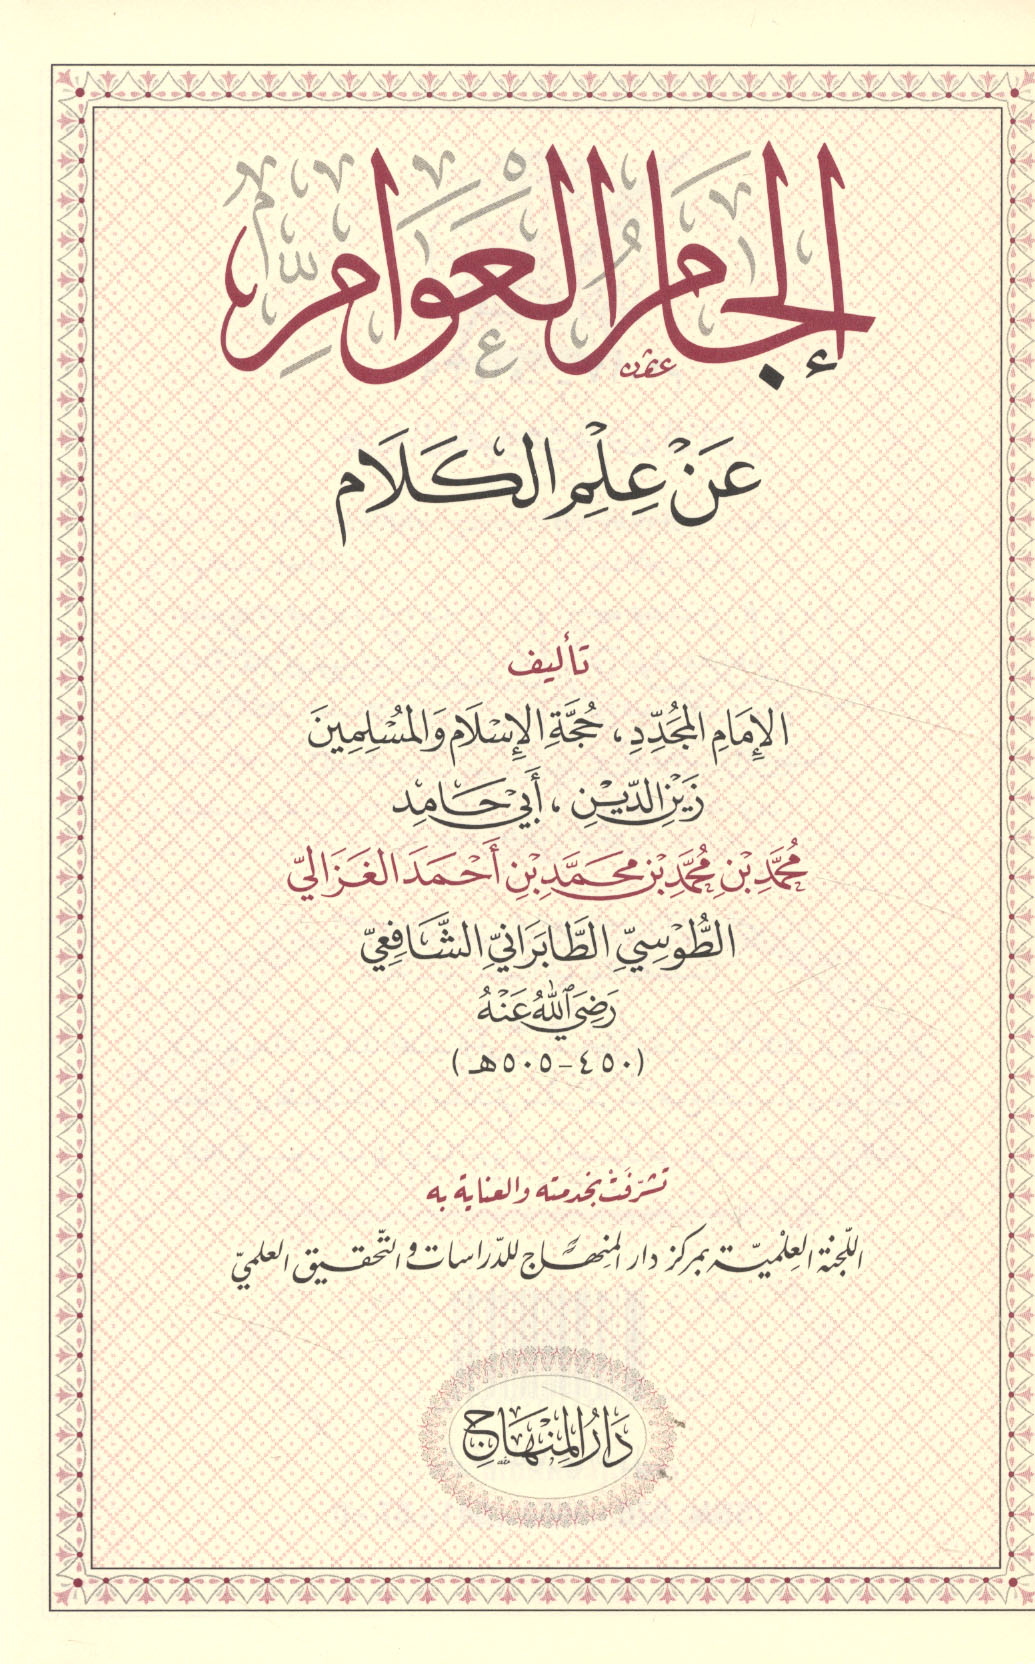 إلجام العوام
عثمان
عَنْ عِلْمِ الكَلَام
تأليف
الإِمَامِ المجَدِّدِ، حُجَّةِ الإِسْلَامِ وَالمُسْلِمِينَ
زَيْنِ الدِّيْنِ، أَبِي حَامِد
مُحَمَّدِ بْنِ مُحَمَّدِ بْنِ مُحَمَّدِ بْنِ أَحْمَدَ الغَزَالِيّ
الطُّوْسِيِّ الطَّابَرَانِيِّ الشَّافِعِيّ
رَضِيَ اللهُ عَنْهُ
(٤٥٠-٥٠٥هـ)
تشرّفَتْ بخدمته والعناية به
اللّجنة العِلْميّة بمركز دار المِنهَاج للدّراسات والتّحقيق العلميّ
دَارُ المِنْهَاجِ